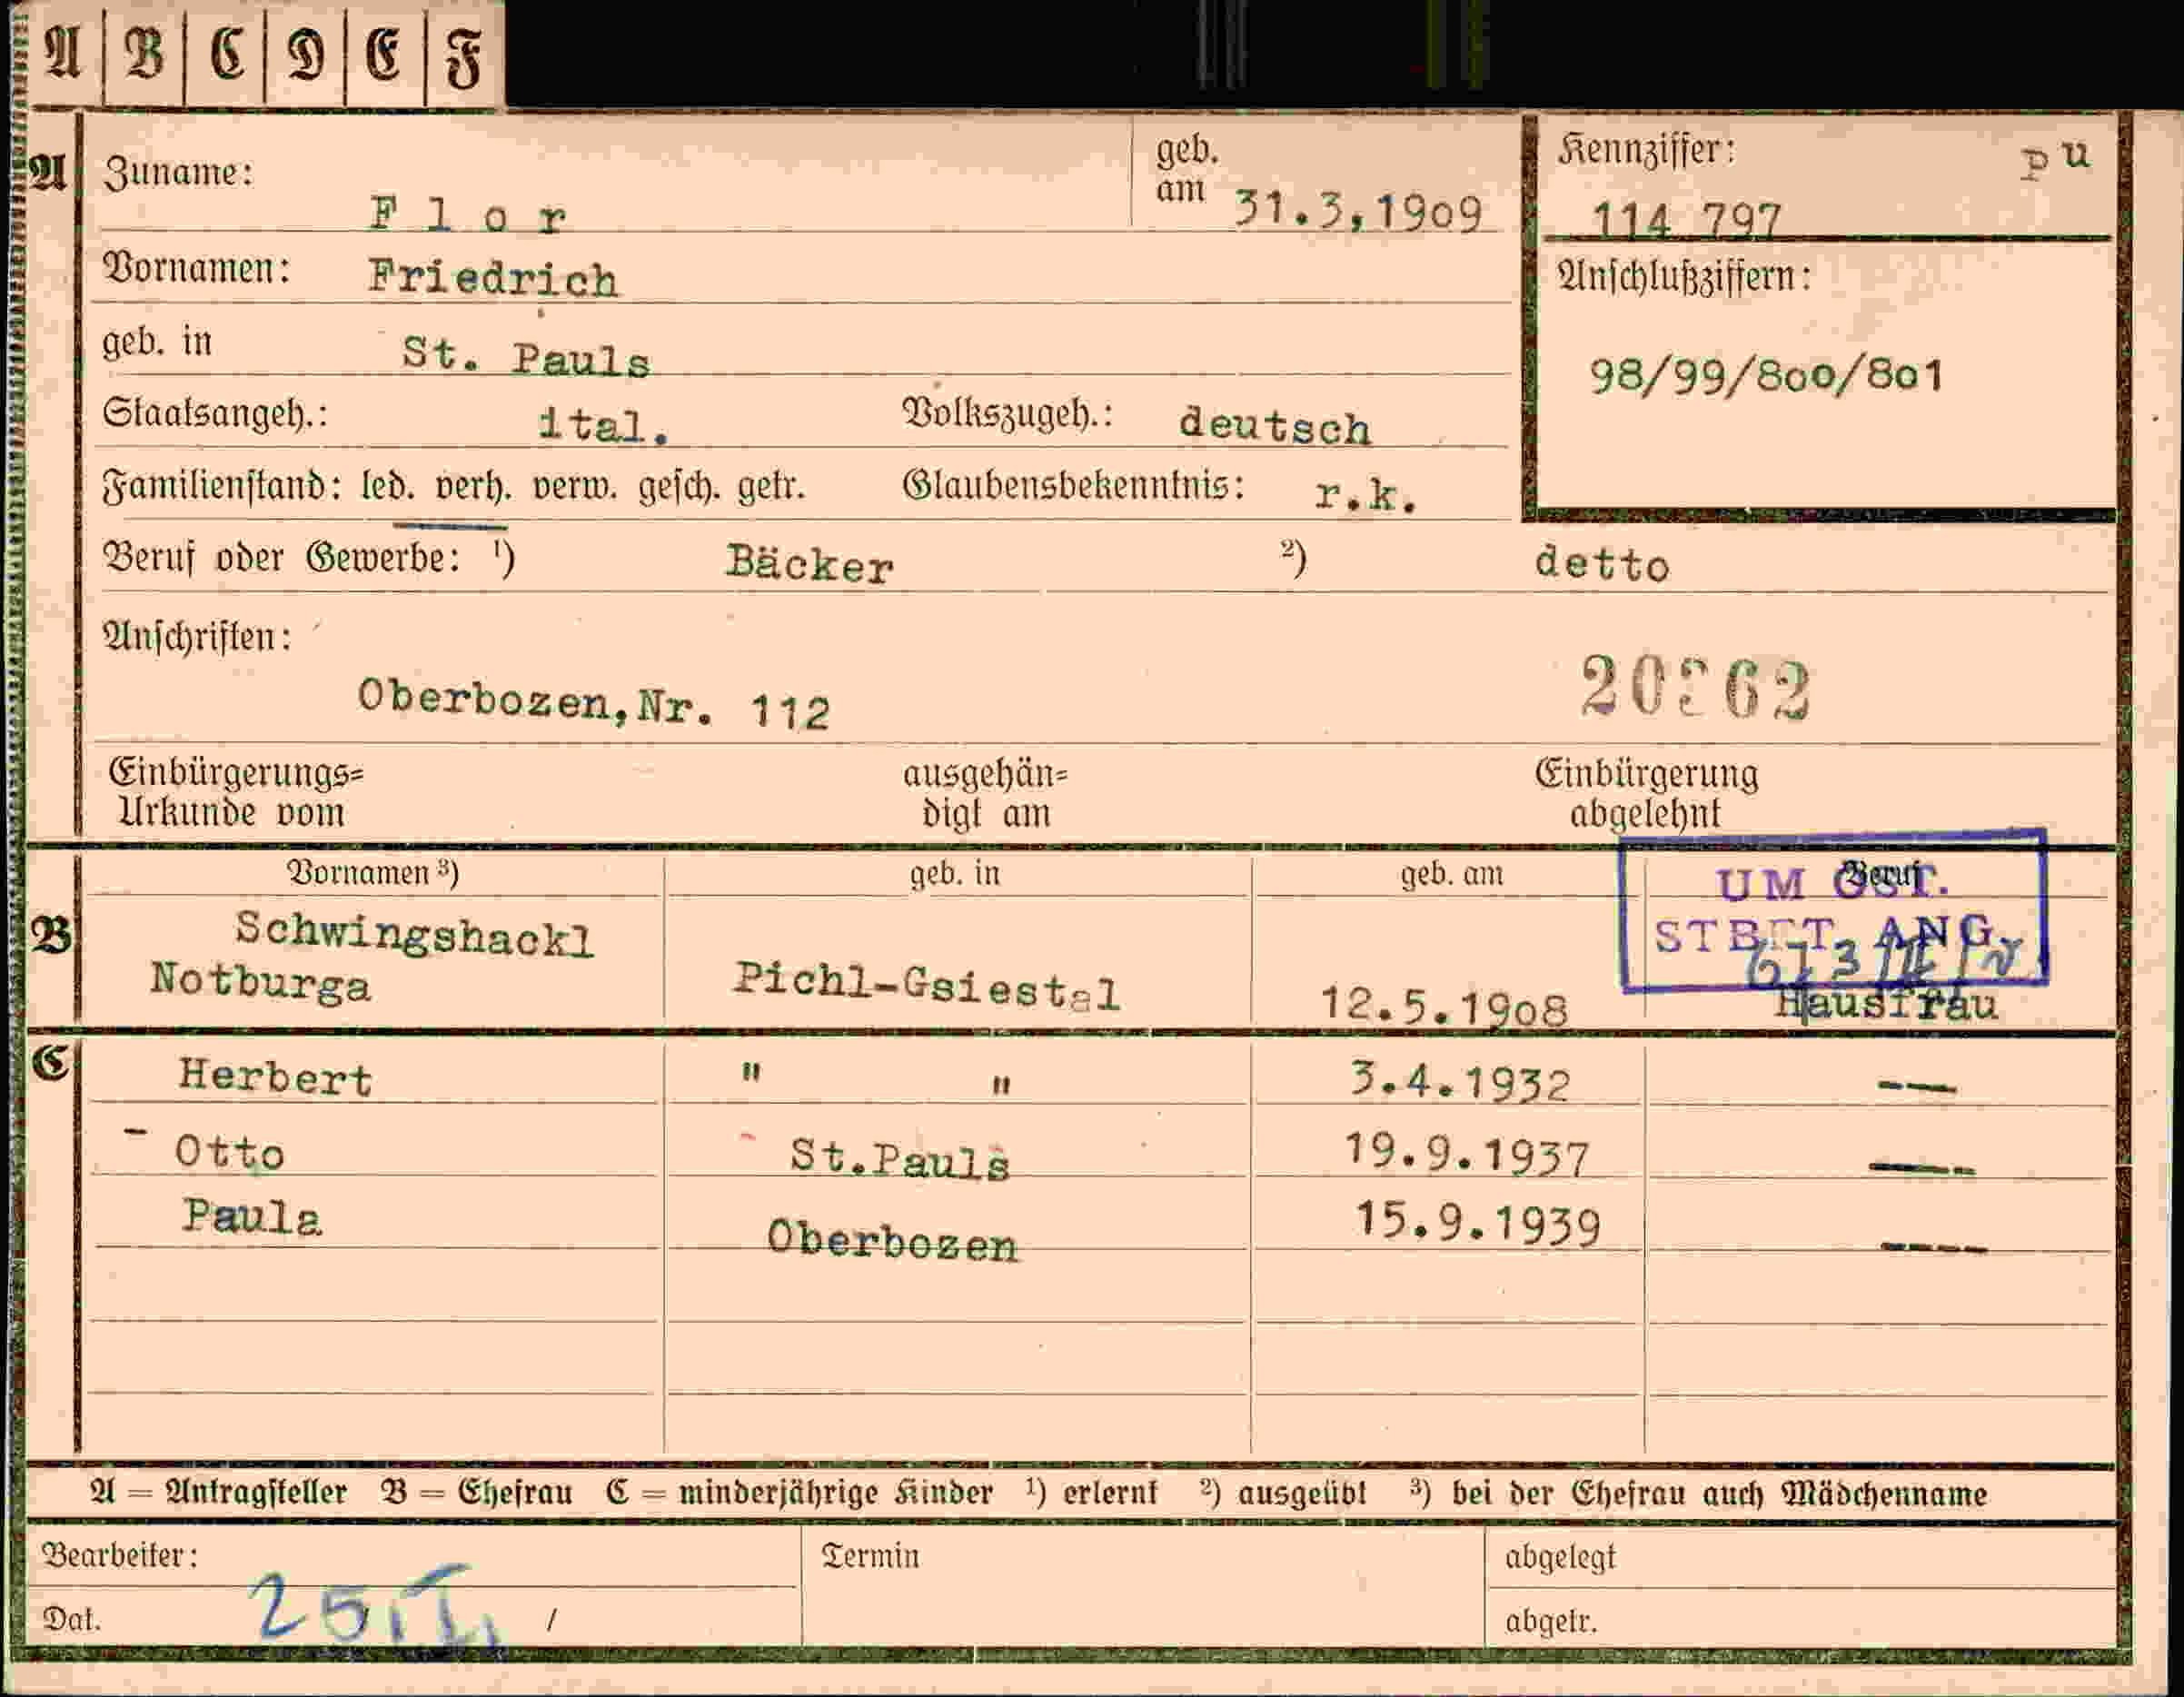 A B C D E F
A Zuname: F l o r geb. am 31.3,1909
Kennziffer: pu
114 797
Vornamen: Friedrich
Anschlußziffern:
geb. in St. Pauls
98/99/800/801
Staatsangeh.: ital. Volkszugeh.: deutsch
Familienstand: led. verh. verw. gesch. getr. Glaubensbekenntnis: r.k.
Beruf oder Gewerbe: ¹) Bäcker ²) detto
Anschriften:
Oberbozen,Nr. 112
Einbürgerungs= ausgehän= Einbürgerung
Urkunde vom digt am abgelehnt
Vornamen ³) geb. in geb. am Beruf
UM OST.
B Schwingshackl
Notburga Pichl-Gsiestal 12.5.1908 Hausfrau
C Herbert " " 3.4.1932 ---
- Otto St.Pauls 19.9.1937 ----
Paula Oberbozen 15.9.1939 ----
A = Antragsteller B = Ehefrau C = minderjährige Kinder ¹) erlernt ²) ausgeübt ³) bei der Ehefrau auch Mädchenname
Bearbeiter: Termin abgelegt
Dat. 25.I. / abgetr.